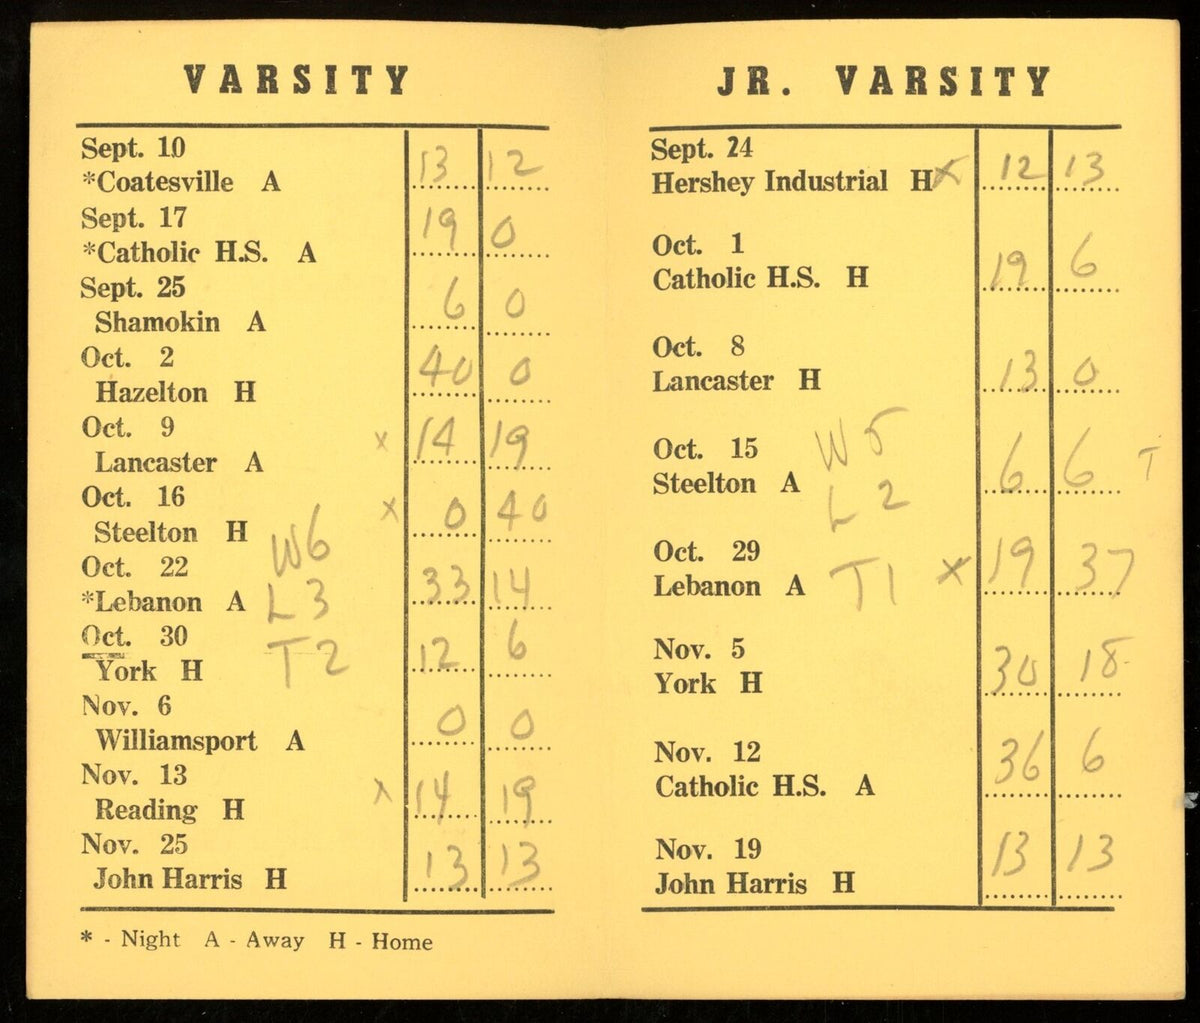 VARSITY
Sept. 10
*Coatesville A 13 12
Sept. 17
*Catholic H.S. A 19 0
Sept. 25
Shamokin A 6 0
Oct. 2
Hazelton H 40 0
Oct. 9
Lancaster A x 14 19
Oct. 16
Steelton H x 0 40
W6
Oct. 22
*Lebanon A 33 14
L 3
Oct. 30
York H 12 6
T 2
Nov. 6
Williamsport A 0 0
Nov. 13
Reading H x 14 19
Nov. 25
John Harris H 13 13
* - Night A - Away H - Home
JR. VARSITY
Sept. 24
Hershey Industrial H x 12 13
Oct. 1
Catholic H.S. H 19 6
Oct. 8
Lancaster H 13 0
W 5
Oct. 15
Steelton A 6 6 T
L 2
Oct. 29
Lebanon A x 19 37
T 1
Nov. 5
York H 30 18
Nov. 12
Catholic H.S. A 36 6
Nov. 19
John Harris H 13 13